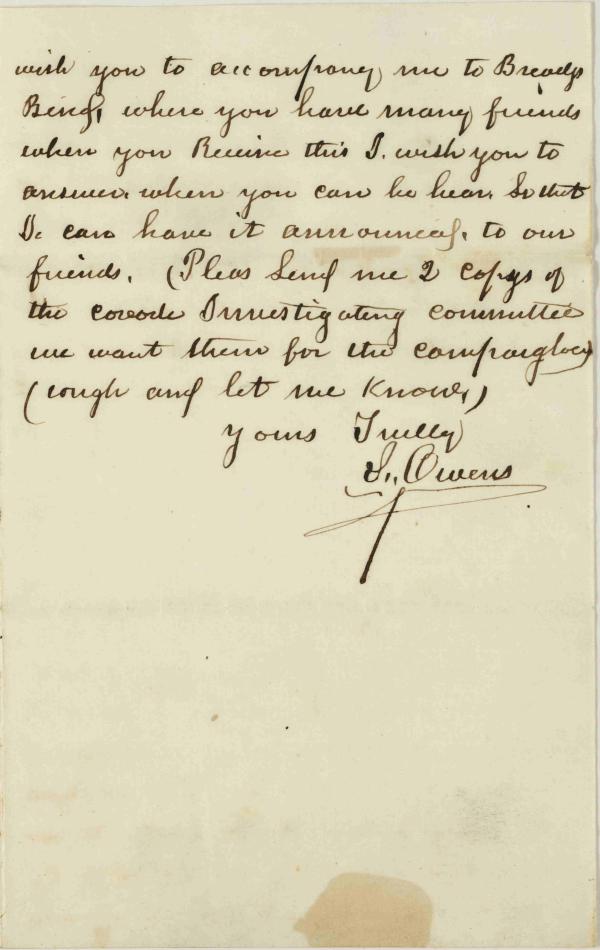 wish you to accompany me to Breadys
Bend, where you have many friends
when you Receive this I. wish you to
answer. when you can be hear. So that
We can have it announced, to our
friends. (Pleas Send me 2 copys of
the covode Investigating committee
we want them for the
( and let me Know,)
yours Truelly
S,, Owens